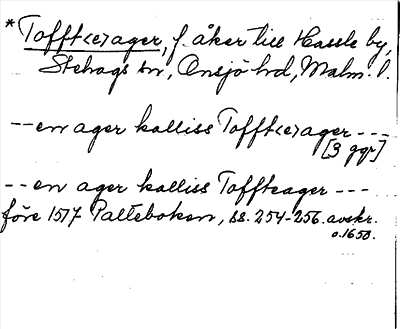 *Tofft<e>ager, f. åker till Hassle by,
Stehags sn, Onsjö hd, Malm. l.
--en ager kalliss Tofft<e>ager ---
[3 ggr]
--en ager kalliss Toffteager ---
före 1517 Palteboken, ss. 254-256. avskr.
o. 1650.